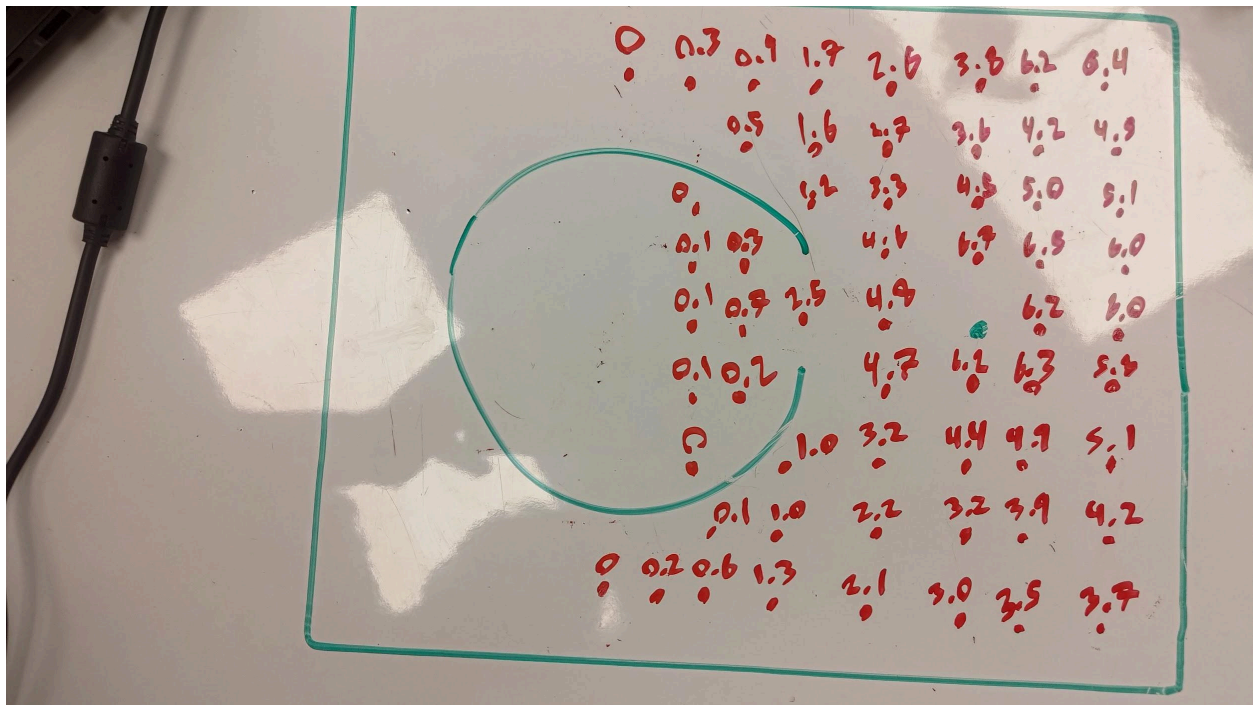 0 0.3 0.9 1.7 2.6 3.8 6.2 6.4
0.5 1.6 2.7 3.6 4.2 4.9
0. 1.2 3.3 4.5 5.0 5.1
0.1 0.3 4.6 6.7 6.5 6.0
0.1 0.7 2.5 4.8 6.2 6.0
0.1 0.2 4.7 6.2 6.3 5.8
0 1.0 3.2 4.4 4.9 5.1
0.1 1.0 2.2 3.2 3.9 4.2
0 0.2 0.6 1.3 2.1 3.0 3.5 3.7